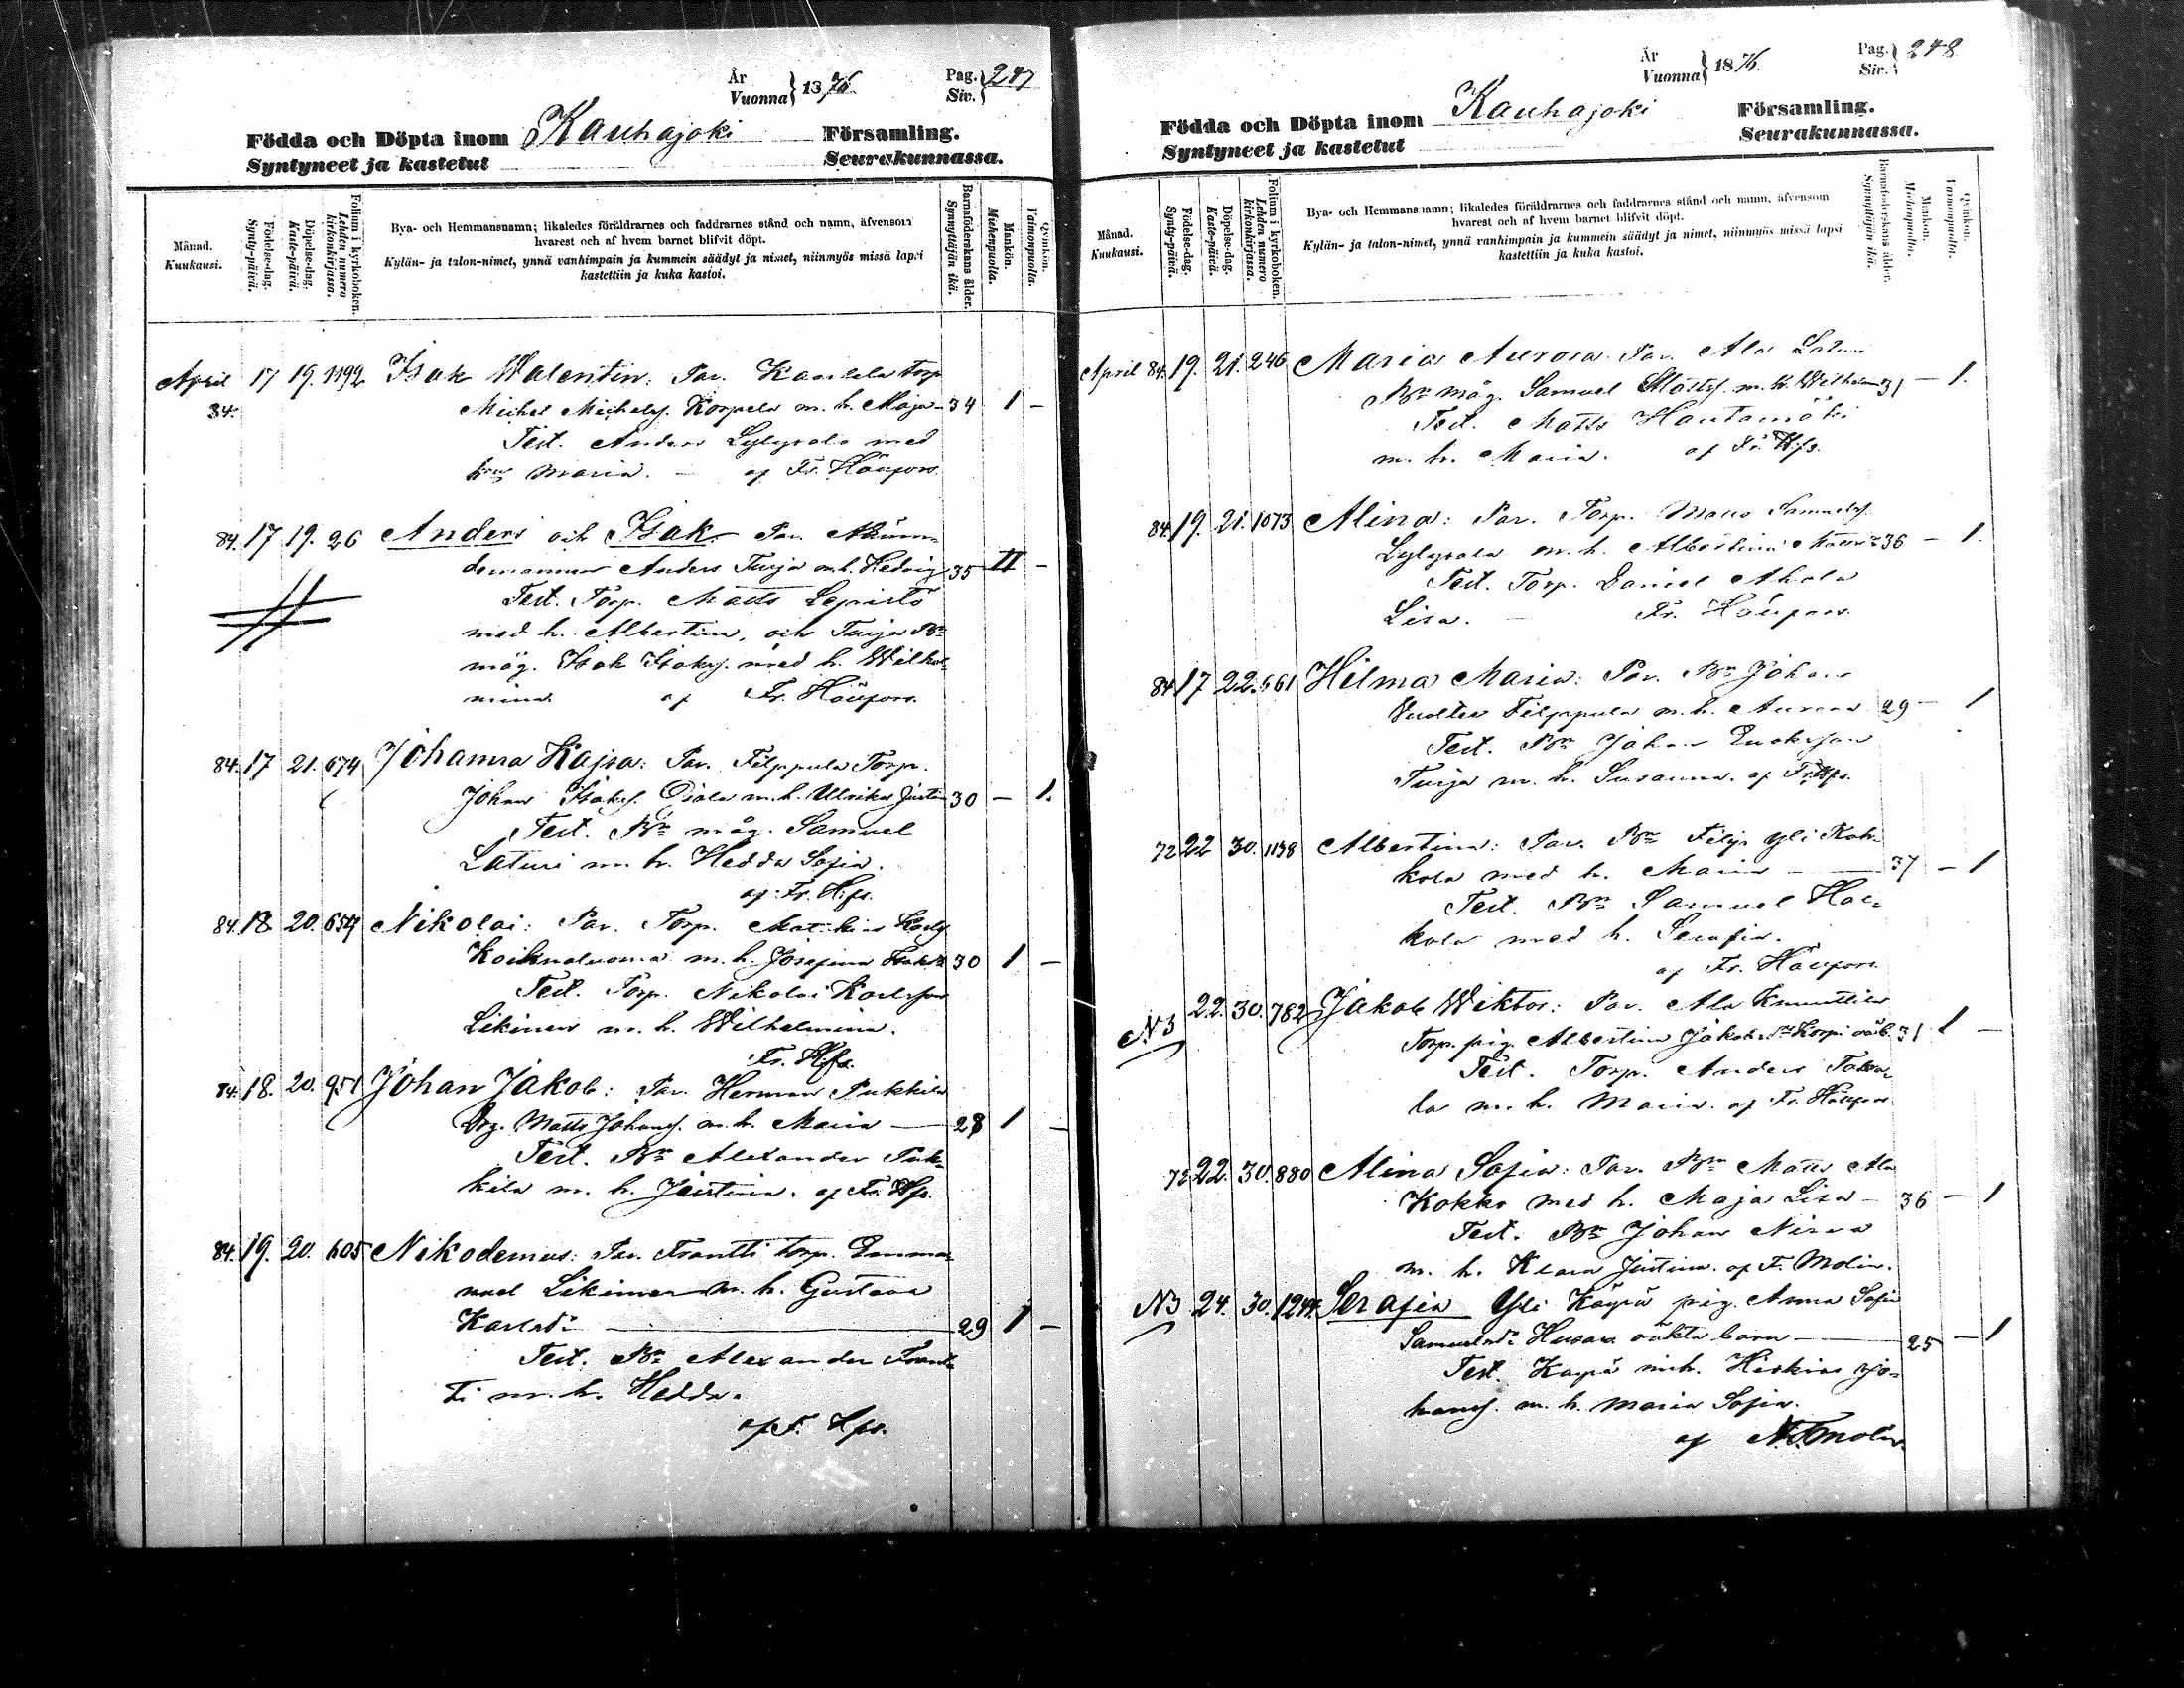 År
Vuonna } 1876. Pag. Siv. } 247
Födda och Döpta inom Kauhajoki Församling.
Syntyneet ja kastetut Seurakunnassa.
Månad.
Kuukausi.
Födelse-dag.
Synty-päivä.
Döpelse-dag.
Kaste-päivä.
Folium i kyrkoboken.
Lehden numero kirkonkirjassa.
Bya- och Hemmansnamn; likaledes föräldrarnes och faddrarnes stånd och namn, äfvensom
hvarest och af hvem barnet blifvit döpt.
Kylän- ja talon-nimet, ynnä vanhimpain ja kummein säädyt ja nimet, niinmyös missä lapsi
kastettiin ja kuka kastoi.
Barnaföderskans ålder.
Synnyttäjän ikä.
Mankön.
Miehenpuolta.
Qvinkön.
Vaimonpuolta.
April 17 19. 1192 Isak Walentin: Par. torp
84. Michel Michelss. Korpela m. h. Maja 34 1 –
Test. Anders Lylysalo med
hru Maria. – af Fr. Häufors
84. 17 19. 26 Anders och Isak Par. Nämn=
demannen Anders Turja m.h. Hedvig 35 II –
Test. Torp. Matts Lepistö
med h. Albertina, och Turja Bn
måg. Isak Isakss. med h. Wilhel=
mina af Fr. Häufors.
84. 17 21. 674 Johanna Kajsa: Par. Filppula Torp.
Johan Isakss. Ojala m.h. Ulrika Justina 30 – 1.
Test. Bn måg. Samuel
Laturi m. h. Hedda Sofia.
af Fr. Hfs.
84. 18 20. 654 Nikolai: Par. Torp.
Koiknaluoma m. h. Josefina 30 1 –
Test. Torp. Nikolai Karlsson
Likinen m. h. Wilhelmina.
Fr. Hfs.
84. 18. 20. 951 Johan Jakob: Par. Herman Pukkila
Matts Johanss. m. h. Maria – 28 1 –
Test. Bn Alexander Puk=
kila m. h. Justina. af Fr. Hfs.
84. 19. 20. 605 Nikodemus: Par. Frantti torp. Emma=
nuel Likinen m. h. Gustava
Karlsdr 29 1 –
Test. Bn Alexander Frant=
ti m. h. Hedda.
af F. Hfs.
År
Vuonna } 1876. Pag. Siv. } 248
Födda och Döpta inom Kauhajoki Församling.
Syntyneet ja kastetut Seurakunnassa.
Månad.
Kuukausi.
Födelse-dag.
Synty-päivä.
Döpelse-dag.
Kaste-päivä.
Folium i kyrkoboken.
Lehden numero kirkonkirjassa.
Bya- och Hemmansnamn; likaledes föräldrarnes och faddrarnes stånd och namn, äfvensom
hvarest och af hvem barnet blifvit döpt.
Kylän- ja talon-nimet, ynnä vanhimpain ja kummein säädyt ja nimet, niinmyös missä lapsi
kastettiin ja kuka kastoi.
Barnaföderskans ålder.
Synnyttäjän ikä.
Mankön.
Miehenpuolta.
Qvinkön.
Vaimonpuolta.
April 84. 19. 21. 246 Maria Aurora. Par. Ala
Bn måg. Samuel Mattss. m. h. Wilhelmina 31 – 1.
Test. Matts Hautamäki
m. h. Maria. af Fr. Hfs.
84. 19. 21. 1073 Alina: Par. Torp. Matts Samuelss.
Lylysalo m. h. Albertina 36 – 1.
Test. Torp. Daniel Ahola
Lisa. – Fr. Häufors.
84 17 22. 661 Hilma Maria: Par. Bn Johan
Filppula m. h. Aurora 29 – 1
Test. Bn Johan
Turja m. h. Susanna. af Fr. Hfs.
72 22 30. 1138 Albertina: Par. Bn Filip Yli Koh=
kola med h. Maria – 37 – 1
Test. Bn Samuel
kola med h. Serafia.
af Fr. Häufors.
N3 22. 30. 782 Jakob Wiktor: Par. Ala Knuuttila
Torp. pig. Albertina Korpi oäb. 31 1 –
Test. Torp. Anders
la m. h. Maria. af Fr. Häufors
72 22. 30. 880 Alina Sofia: Par. Bn Matts Ala
Kokko med h. Maja Lisa – 36 – 1
Test. Bn Johan Nirva
m. h. Klara Justina. af F. Molin.
N3 24. 30. 1244. Serafia Yli Käyrä pig. Anna Sofia
Samuelsdr oäkta barn – 25 – 1
Test. Käyrä Hiskias Jo=
hanss. m. h. Maria Sofia.
af N. F. Molin